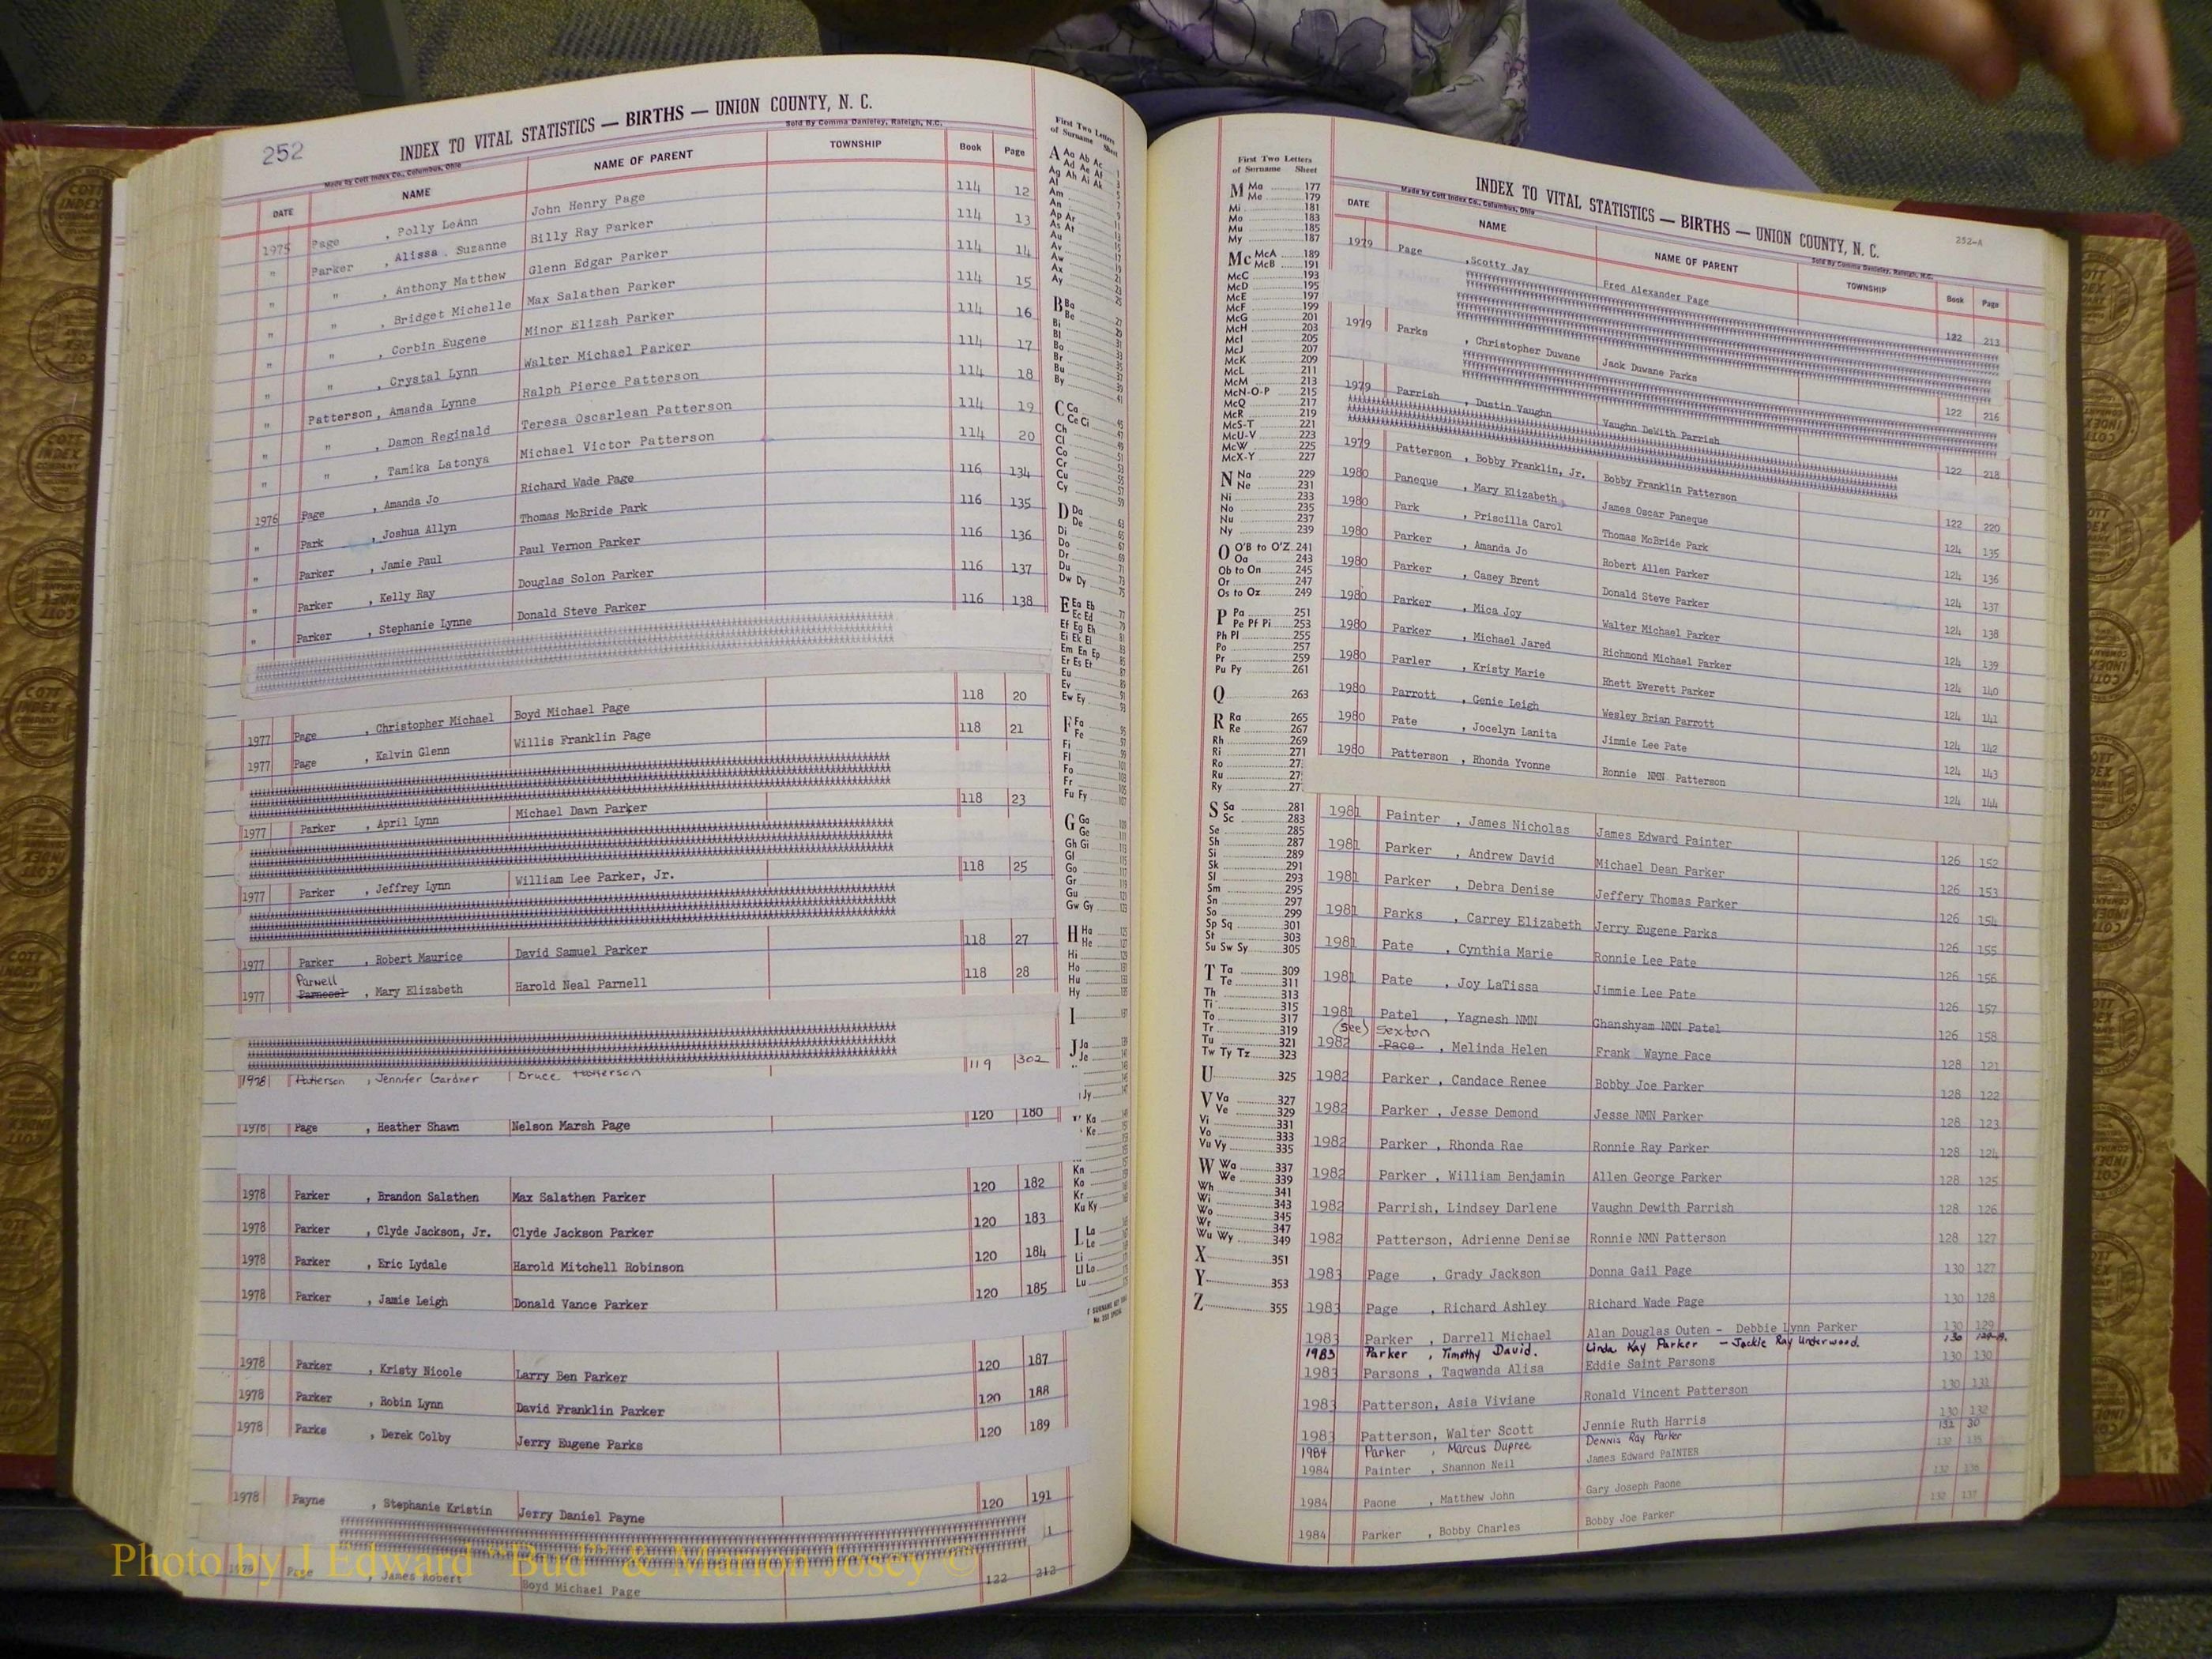 252
INDEX TO VITAL STATISTICS — BIRTHS — UNION COUNTY, N. C.
Made by Cott Index Co., Columbus, Ohio
Sold By Comma Danieley, Raleigh, N.C.
DATE NAME NAME OF PARENT TOWNSHIP Book Page
1975 Page , Polly LeAnn John Henry Page 114 12
" Parker , Alissa Suzanne Billy Ray Parker 114 13
" " , Anthony Matthew Glenn Edgar Parker 114 14
" " , Bridget Michelle Max Salathen Parker 114 15
" " , Corbin Eugene Minor Elizah Parker 114 16
" " , Crystal Lynn Walter Michael Parker 114 17
" Patterson, Amanda Lynne Ralph Pierce Patterson 114 18
" " , Damon Reginald Teresa Oscarlean Patterson 114 19
" " , Tamika Latonya Michael Victor Patterson 114 20
1976 Page , Amanda Jo Richard Wade Page 116 134
" Park , Joshua Allyn Thomas McBride Park 116 135
" Parker , Jamie Paul Paul Vernon Parker 116 136
" Parker , Kelly Ray Douglas Solon Parker 116 137
" Parker , Stephanie Lynne Donald Steve Parker 116 138
1977 Page , Christopher Michael Boyd Michael Page 118 20
1977 Page , Kalvin Glenn Willis Franklin Page 118 21
1977 Parker , April Lynn Michael Dawn Parker 118 23
1977 Parker , Jeffrey Lynn William Lee Parker, Jr. 118 25
1977 Parker , Robert Maurice David Samuel Parker 118 27
Parnell
1977 , Mary Elizabeth Harold Neal Parnell 118 28
1978 Patterson , Jennifer Gardner Bruce Patterson 119 302
1978 Page , Heather Shawn Nelson Marsh Page 120 180
1978 Parker , Brandon Salathen Max Salathen Parker 120 182
1978 Parker , Clyde Jackson, Jr. Clyde Jackson Parker 120 183
1978 Parker , Eric Lydale Harold Mitchell Robinson 120 184
1978 Parker , Jamie Leigh Donald Vance Parker 120 185
1978 Parker , Kristy Nicole Larry Ben Parker 120 187
1978 Parker , Robin Lynn David Franklin Parker 120 188
1978 Parks , Derek Colby Jerry Eugene Parks 120 189
1978 Payne , Stephanie Kristin Jerry Daniel Payne 120 191
1979 Page , James Robert Boyd Michael Page 122 212
Photo by J Edward "Bud" & Marion Josey ©
First Two Letters
of Surname Sheet
A Aa Ab Ac
Ad Ae Af
Ag Ah Ai Ak
Al
Am
An
Ap Ar
As At
Au
Av
Aw
Ax
Ay
B Ba
Be
Bi
Bl
Bo
Br
Bu
By
C Ca
Ce Ci
Ch
Cl
Co
Cr
Cu
Cy
D Da
De
Di
Do
Dr
Du
Dw Dy
E Ea Eb
Ec Ed
Ef Eg Eh
Ei Ek El
Em En Ep
Er Es Et
Eu
Ev
Ew Ey
F Fa
Fe
Fi
Fl
Fo
Fr
Fu Fy
G Ga
Ge
Gh Gi
Gl
Go
Gr
Gu
Gw Gy
H Ha
He
Hi
Ho
Hu
Hy
I
J Ja
Je
Jy
Ka
Ke
Kn
Ko
Kr
Ku Ky
L La
Le
Li
Ll Lo
Lu
First Two Letters
of Surname Sheet
M Ma 177
Me 179
Mi 181
Mo 183
Mu 185
My 187
Mc McA 189
McB 191
McC 193
McD 195
McE 197
McF 199
McG 201
McH 203
McI 205
McJ 207
McK 209
McL 211
McM 213
McN-O-P 215
McQ 217
McR 219
McS-T 221
McU-V 223
McW 225
McX-Y 227
N Na 229
Ne 231
Ni 233
No 235
Nu 237
Ny 239
O O'B to O'Z 241
Oa 243
Ob to On 245
Or 247
Os to Oz 249
P Pa 251
Pe Pf Pi 253
Ph Pl 255
Po 257
Pr 259
Pu Py 261
Q 263
R Ra 265
Re 267
Rh 269
Ri 271
Ro 27
Ru 27
Ry 27
S Sa 281
Sc 283
Se 285
Sh 287
Si 289
Sk 291
Sl 293
Sm 295
Sn 297
So 299
Sp Sq 301
St 303
Su Sw Sy 305
T Ta 309
Te 311
Th 313
Ti 315
To 317
Tr 319
Tu 321
Tw Ty Tz 323
U 325
V Va 327
Ve 329
Vi 331
Vo 333
Vu Vy 335
W Wa 337
We 339
Wh 341
Wi 343
Wo 345
Wr 347
Wu Wy 349
X 351
Y 353
Z 355
INDEX TO VITAL STATISTICS — BIRTHS — UNION COUNTY, N. C.
252-A
Made by Cott Index Co., Columbus, Ohio
Sold By Comma Danieley, Raleigh, N.C.
DATE NAME NAME OF PARENT TOWNSHIP Book Page
1979 Page , Scotty Jay Fred Alexander Page 122 213
1979 Parks , Christopher Duwane Jack Duwane Parks 122 216
1979 Parrish , Dustin Vaughn Vaughn DeWith Parrish 122 218
1979 Patterson , Bobby Franklin, Jr. Bobby Franklin Patterson 122 220
1980 Paneque , Mary Elizabeth James Oscar Paneque 124 135
1980 Park , Priscilla Carol Thomas McBride Park 124 136
1980 Parker , Amanda Jo Robert Allen Parker 124 137
1980 Parker , Casey Brent Donald Steve Parker 124 138
1980 Parker , Mica Joy Walter Michael Parker 124 139
1980 Parker , Michael Jared Richmond Michael Parker 124 140
1980 Parler , Kristy Marie Rhett Everett Parker 124 141
1980 Parrott , Genie Leigh Wesley Brian Parrott 124 142
1980 Pate , Jocelyn Lanita Jimmie Lee Pate 124 143
1980 Patterson , Rhonda Yvonne Ronnie NMN Patterson 124 144
1981 Painter , James Nicholas James Edward Painter 126 152
1981 Parker , Andrew David Michael Dean Parker 126 153
1981 Parker , Debra Denise Jeffery Thomas Parker 126 154
1981 Parks , Carrey Elizabeth Jerry Eugene Parks 126 155
1981 Pate , Cynthia Marie Ronnie Lee Pate 126 156
1981 Pate , Joy LaTissa Jimmie Lee Pate 126 157
1981 Patel , Yagnesh NMN Ghanshyam NMN Patel 126 158
(see) Sexton
1982 Pace , Melinda Helen Frank Wayne Pace 128 121
1982 Parker , Candace Renee Bobby Joe Parker 128 122
1982 Parker , Jesse Demond Jesse NMN Parker 128 123
1982 Parker , Rhonda Rae Ronnie Ray Parker 128 124
1982 Parker , William Benjamin Allen George Parker 128 125
1982 Parrish, Lindsey Darlene Vaughn Dewith Parrish 128 126
1982 Patterson, Adrienne Denise Ronnie NMN Patterson 128 127
1983 Page , Grady Jackson Donna Gail Page 130 127
1983 Page , Richard Ashley Richard Wade Page 130 128
1983 Parker , Darrell Michael Alan Douglas Outen - Debbie Lynn Parker 130 129
1983 Parker , Timothy David. Linda Kay Parker - Jackie Ray Underwood. 130
1983 Parsons , Taqwanda Alisa Eddie Saint Parsons 130 130
1983 Patterson, Asia Viviane Ronald Vincent Patterson 130 131
1983 Patterson, Walter Scott Jennie Ruth Harris 130 132
1984 Parker , Marcus Dupree Dennis Ray Parker 132 30
1984 Painter , Shannon Neil James Edward PaiNTER 132 135
1984 Paone , Matthew John Gary Joseph Paone 132 136
1984 Parker , Bobby Charles Bobby Joe Parker 132 137